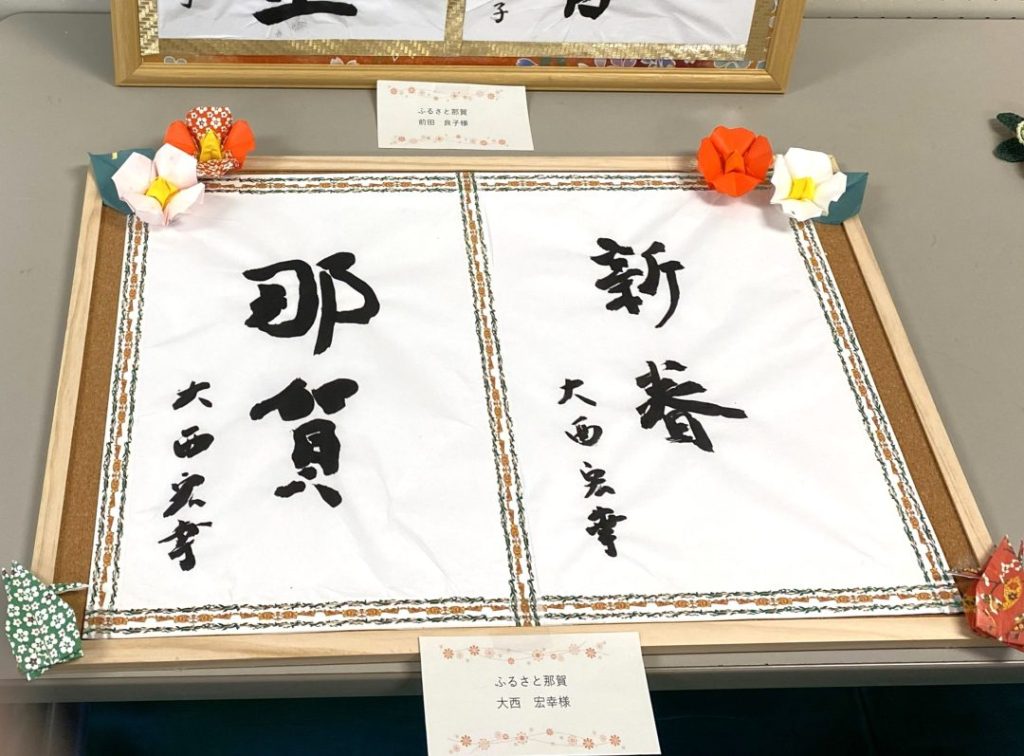 子
ふるさと那賀
前田　良子様
新春
大西宏幸
那賀
大西宏幸
ふるさと那賀
大西　宏幸様